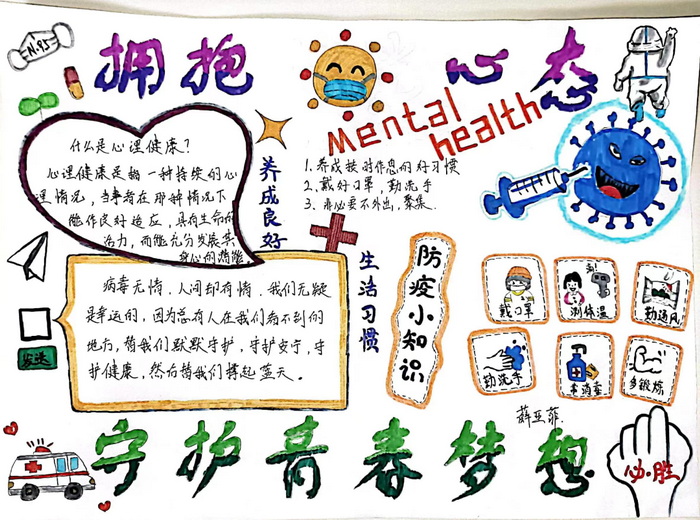 N95
拥抱
心态
Mental
health
什么是心理健康?
心理健康是指一种持续的心
理情况,当事者在那种情况下
能作良好适应,具有生命的
活力,而能充分发展其
身心的潜能
养成良好
生活习惯
1.养成按时作息的好习惯
2.戴好口罩,勤洗手
3.非必要不外出,聚集.
病毒无情.人间却有情.我们无疑
是幸运的,因为总有人在我们看不到的
地方,替我们默默守护,守护安宁,守
护健康,然后替我们撑起蓝天。
发送
防疫小知识
戴口罩
测体温
勤通风
勤洗手
多锻炼
薛亚菲.
守护青春梦想
必胜